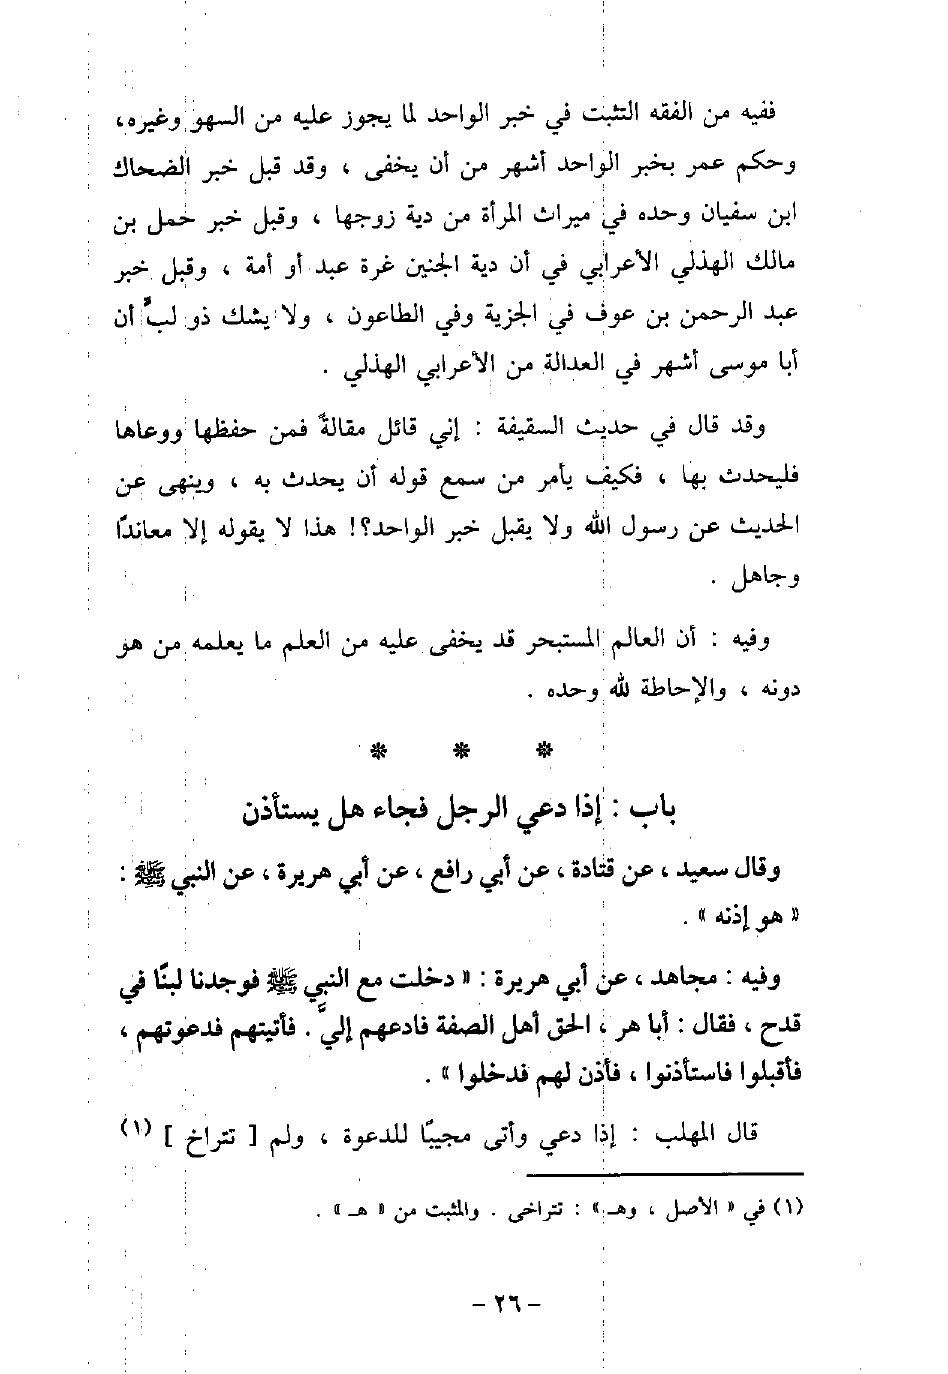 ففيه من الفقه التثبت في خبر الواحد لما يجوز عليه من السهو وغيره،
وحكم عمر بخبر الواحد أشهر من أن يخفى ، وقد قبل خبر الضحاك
ابن سفيان وحده في ميراث المرأة من دية زوجها ، وقبل خبر حمل بن
مالك الهذلي الأعرابي في أن دية الجنين غرة عبد أو أمة ، وقبل خبر
عبد الرحمن بن عوف في الجزية وفي الطاعون ، ولا يشك ذو لب أن
أبا موسى أشهر في العدالة من الأعرابي الهذلي .
وقد قال في حديث السقيفة : إني قائل مقالةً فمن حفظها ووعاها
فليحدث بها ، فكيف يأمر من سمع قوله أن يحدث به ، وينهى عن
الحديث عن رسول الله ولا يقبل خبر الواحد؟! هذا لا يقوله إلا معاندًا
وجاهل .
وفيه : أن العالم المستبحر قد يخفى عليه من العلم ما يعلمه من هو
دونه ، والإحاطة لله وحده .
* * *
باب : إذا دعي الرجل فجاء هل يستأذن
وقال سعيد ، عن قتادة ، عن أبي رافع ، عن أبي هريرة ، عن النبي ﷺ :
« هو إذنه » .
وفيه : مجاهد ، عن أبي هريرة : « دخلت مع النبي ﷺ فوجدنا لبنًا في
قدح ، فقال : أبا هر ، الحق أهل الصفة فادعهم إليَّ . فأتيتهم فدعوتهم ،
فأقبلوا فاستأذنوا ، فأذن لهم فدخلوا » .
قال المهلب : إذا دعي وأتى مجيبًا للدعوة ، ولم [ تتراخ ] (١)
(١) في « الأصل ، وهـ » : تتراخى . والمثبت من « هـ » .
– ٢٦ –